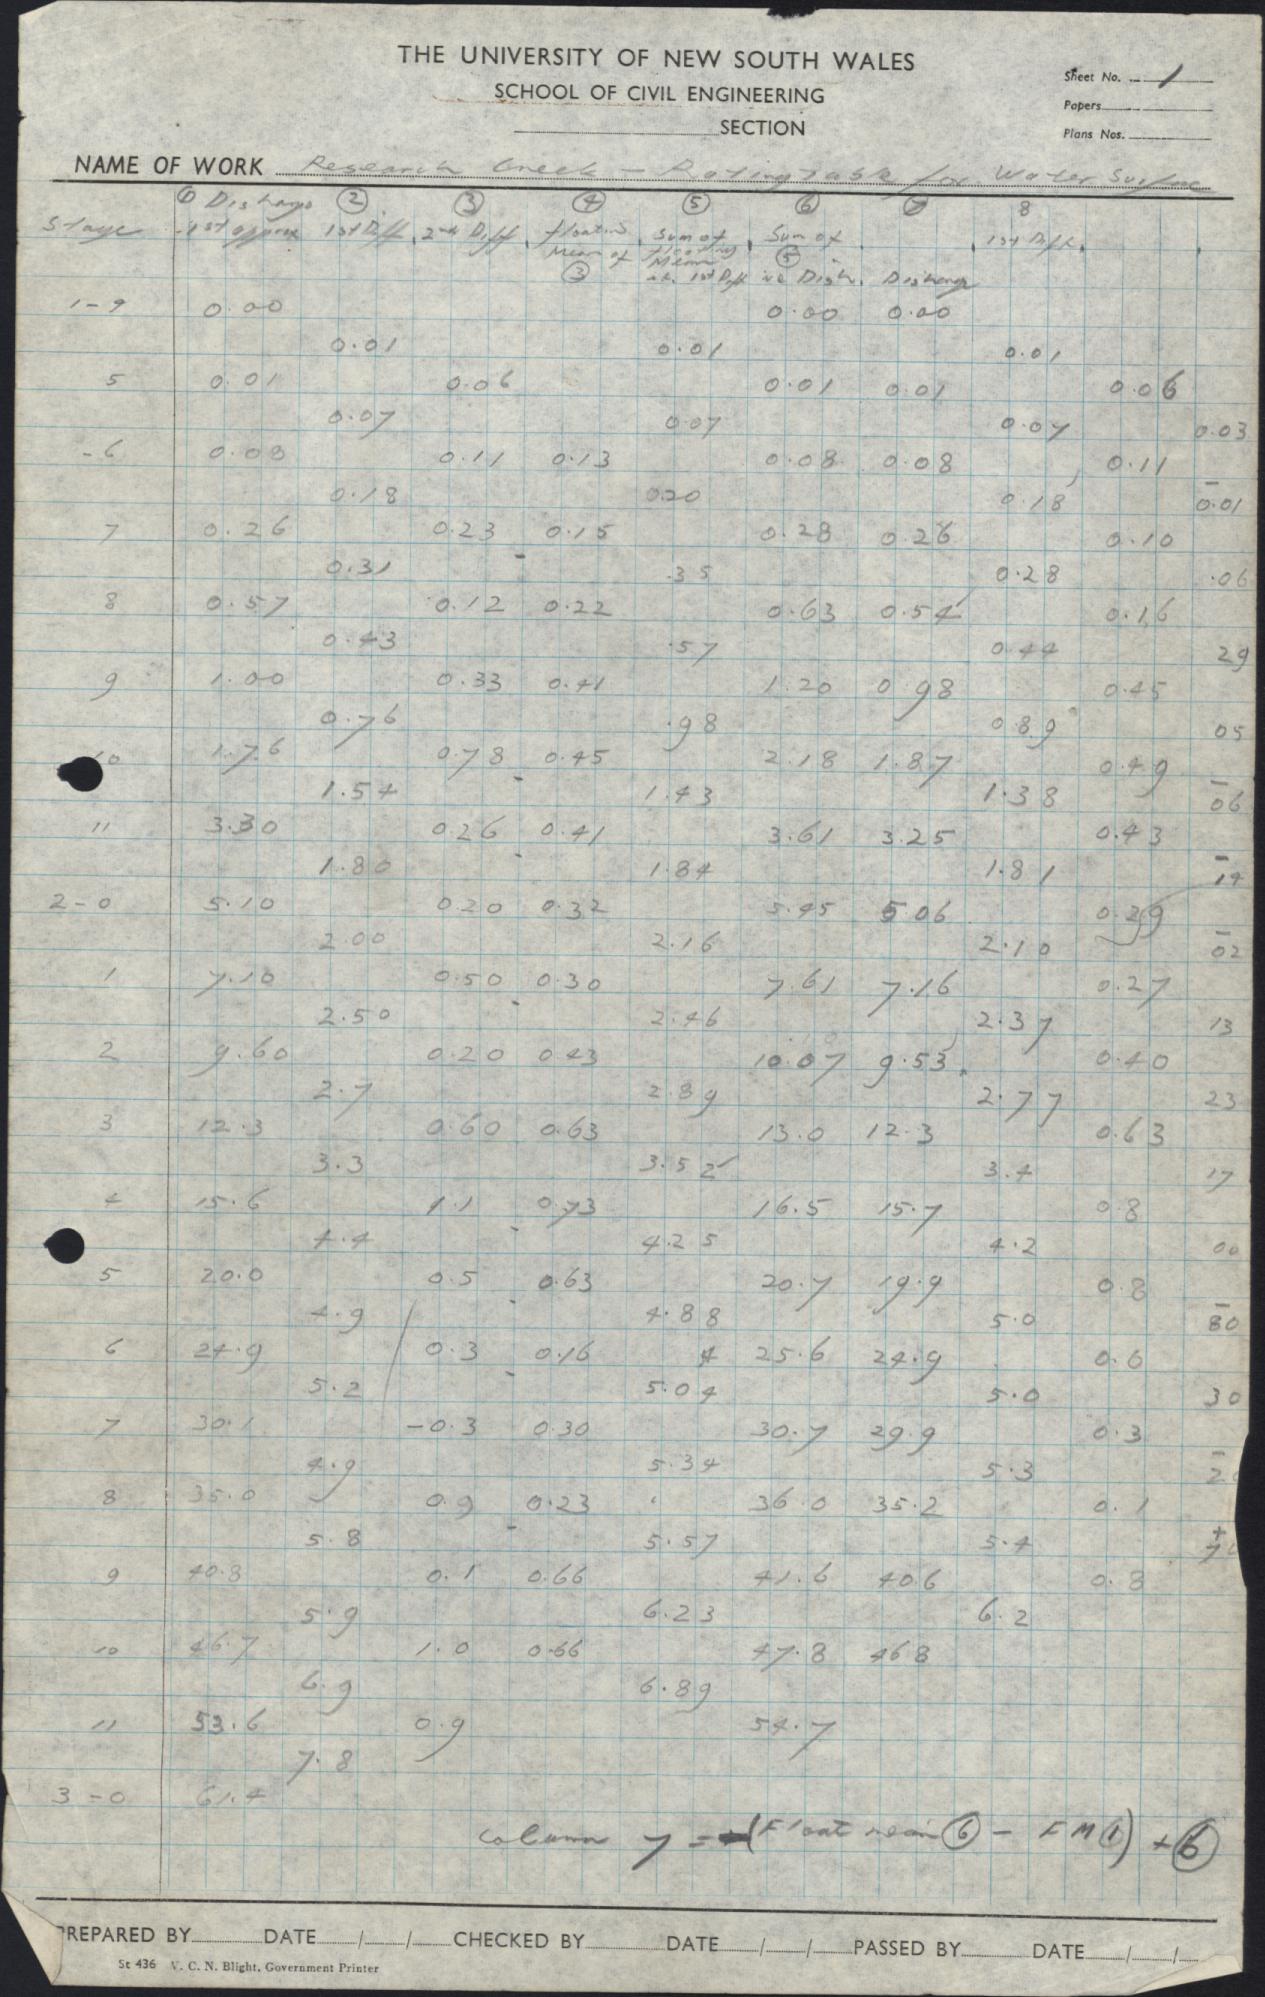 THE UNIVERSITY OF NEW SOUTH WALES
SCHOOL OF CIVIL ENGINEERING
SECTION
Sheet No. 1
Papers
Plans Nos.
NAME OF WORK Research Creek - Rating Table for Water Surface
① Discharge ② ③ ④ ⑤ ⑥ ⑦ 8
Stage 1st approx 1st Diff. 2nd Diff. Floating Sum of Sum of 1st Diff.
Mean of floating ⑤
③ Mean 1st Diff Disch. Discharge
1-9 0.00 0.00 0.00
0.01 0.01 0.01
5 0.01 0.06 0.01 0.01 0.06
0.07 0.07 0.07 0.03
-6 0.08 0.11 0.13 0.08 0.08 0.11
0.18 0.20 0.18 -0.01
7 0.26 0.23 0.15 0.28 0.26 0.10
0.31 .35 0.28 .06
8 0.57 0.12 0.22 0.63 0.54 0.16
0.43 .57 0.44 29
9 1.00 0.33 0.41 1.20 0.98 0.45
0.76 .98 0.89 05
10 1.76 0.78 0.45 2.18 1.87 0.49
1.54 1.43 1.38 -06
11 3.30 0.26 0.41 3.61 3.25 0.43
1.80 1.84 1.81 -14
2-0 5.10 0.20 0.32 5.45 5.06 0.29
2.00 2.16 2.10 -02
1 7.10 0.50 0.30 7.61 7.16 0.27
2.50 2.46 2.37 13
2 9.60 0.20 0.43 10.07 9.53 0.40
2.7 2.89 2.77 23
3 12.3 0.60 0.63 13.0 12.3 0.63
3.3 3.52 3.4 17
4 15.6 1.1 0.73 16.5 15.7 0.8
4.4 4.25 4.2 00
5 20.0 0.5 0.63 20.7 19.9 0.8
4.9 4.88 5.0 -80
6 24.9 0.3 0.16 4 25.6 24.9 0.6
5.2 5.04 5.0 30
7 30.1 -0.3 0.30 30.7 29.9 0.3
4.9 5.34 5.3
8 35.0 0.9 0.23 36.0 35.2 0.1
5.8 5.57 5.4
9 40.8 0.1 0.66 41.6 40.6 0.8
5.9 6.23 6.2
10 46.7 1.0 0.66 47.8 46.8
6.9 6.89
11 53.6 0.9 54.7
7.8
3-0 61.4
Column 7 = (Float mean ⑥ - FM ①) + ⑥
PREPARED BY DATE / / CHECKED BY DATE / / PASSED BY DATE / /
St 436 V. C. N. Blight, Government Printer